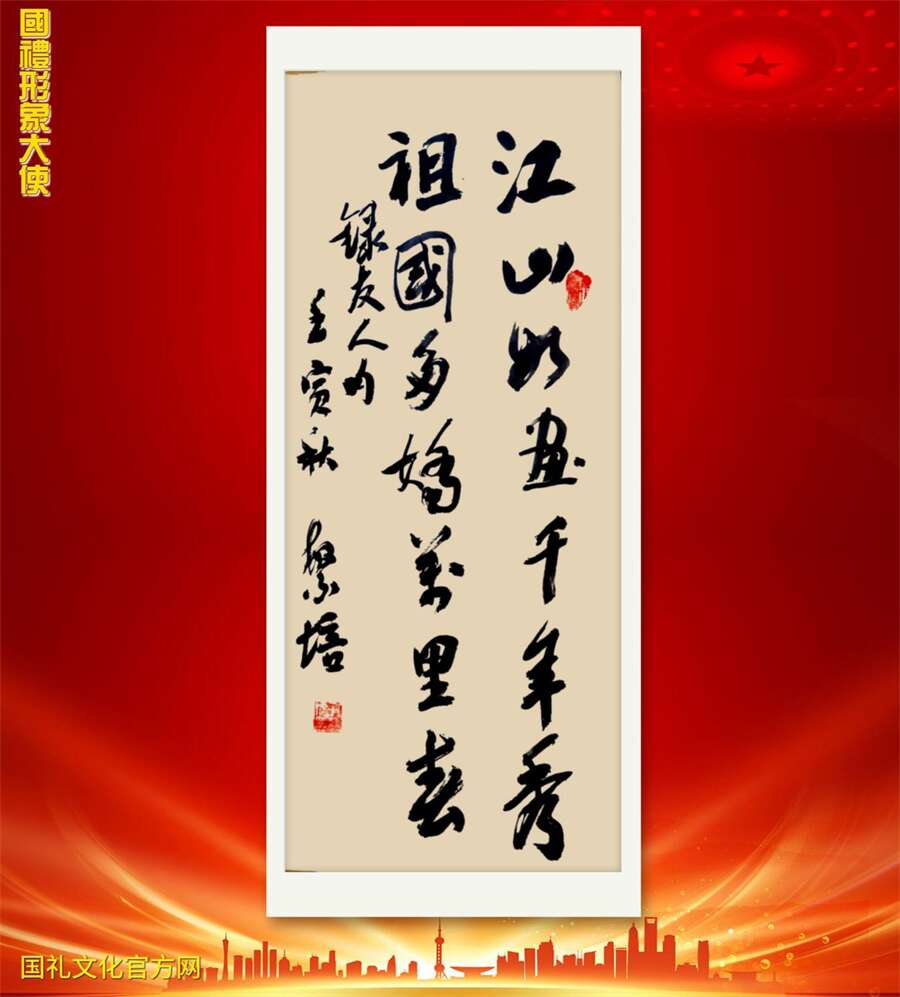 國禮形象大使
江山如画千年秀
祖國多嬌萬里春
録友人句
壬寅秋
黎培
国礼文化官方网